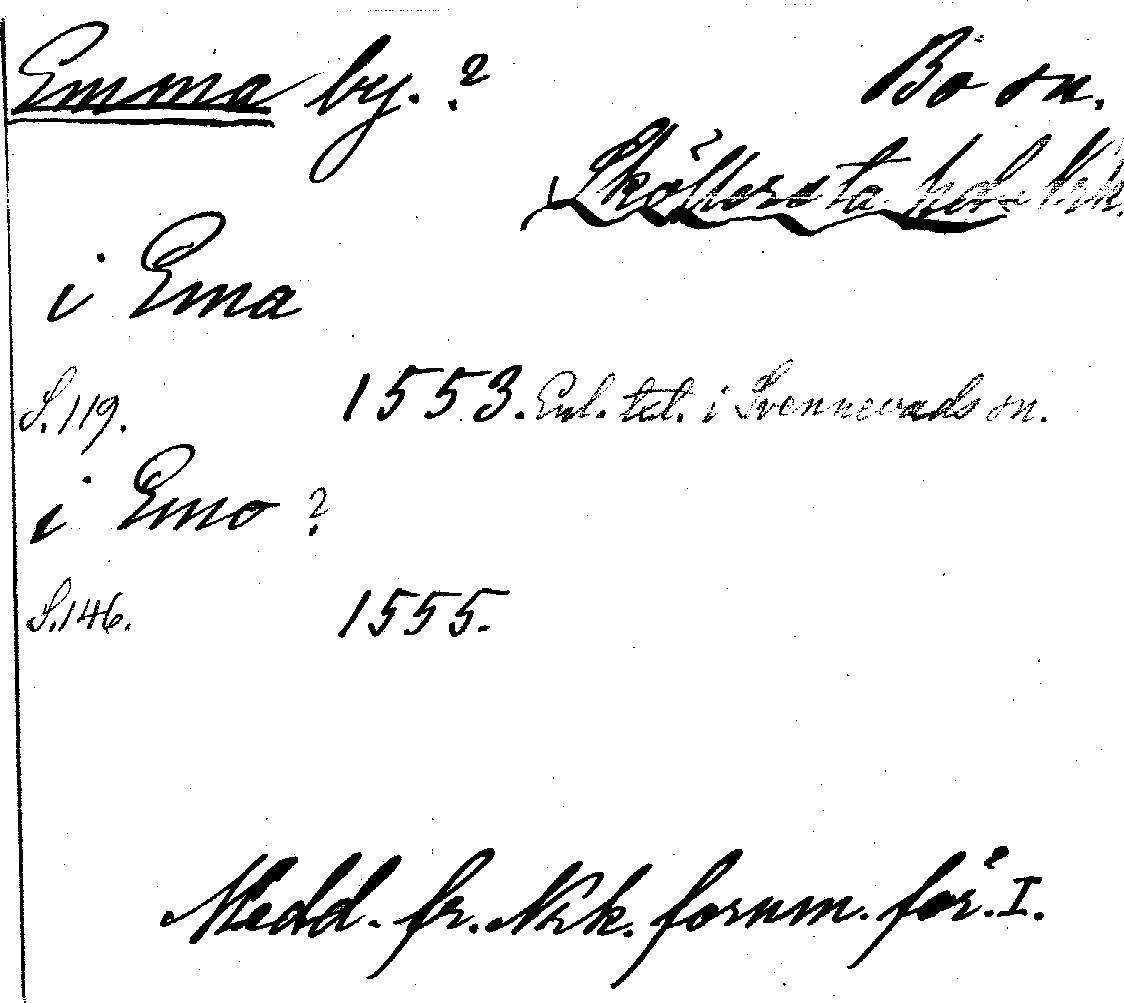 Emma by. ? Bo sn.
Sköllersta hd. Nrk.
i Ema
S. 119. 1553. Enl. tel. i Svennevads sn.
i Emo ?
S. 146. 1555.
Medd. fr. Nrk. fornm. för. I.